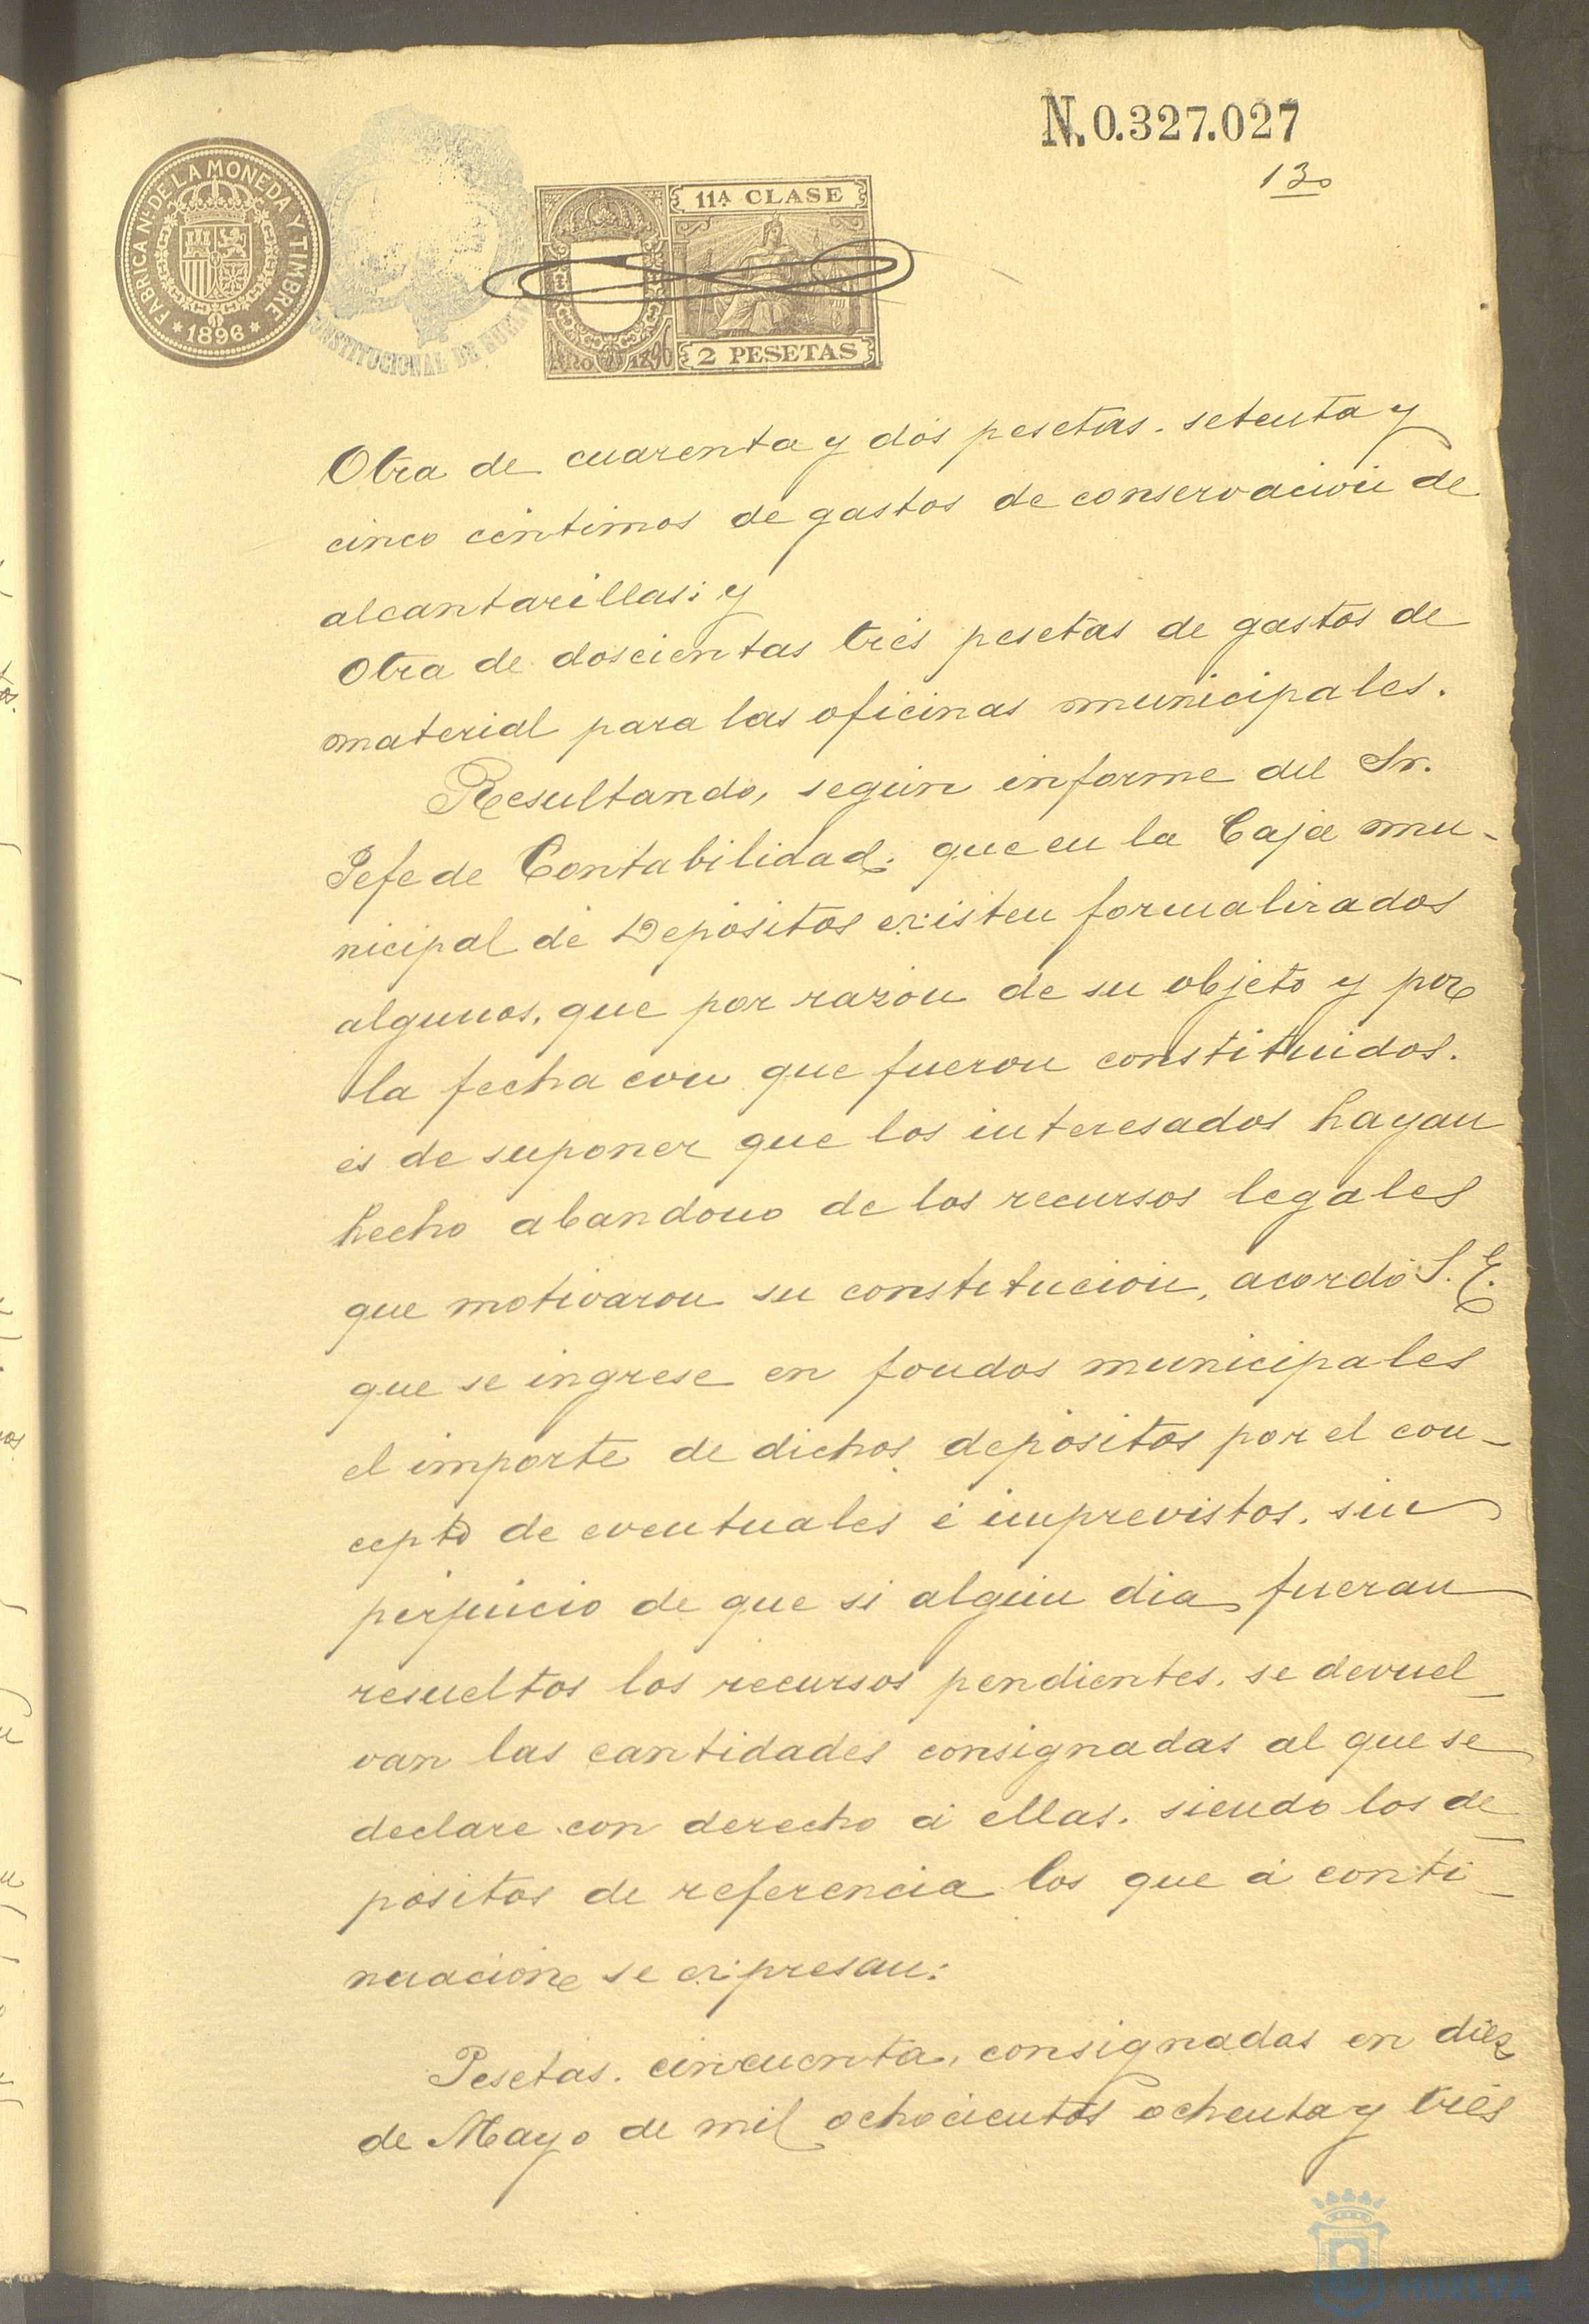 N. 0.327.027
130
FABRICA Nl. DE LA MONEDA Y TIMBRE
* 1896 *
CONSTITUCIONAL DE HUELVA
11ª CLASE
2 PESETAS
Otra de cuarenta y dos pesetas. setenta y
cinco céntimos de gastos de conservación de
alcantarillas; y
Otra de doscientas tres pesetas de gastos de
material para las oficinas municipales.
Resultando, según informe del Sr.
Jefe de Contabilidad, que en la Caja mu-
nicipal de Depósitos existen formalizados
algunos, que por razón de su objeto y por
la fecha con que fueron constituidos.
es de suponer que los interesados hayan
hecho abandono de los recursos legales
que motivaron su constitución, acordó S. E.
que se ingrese en fondos municipales
el importe de dichos depósitos por el con-
cepto de eventuales é imprevistos. sin
perjuicio de que si algún dia fueran
resueltos los recursos pendientes. se devuel-
van las cantidades consignadas al que se
declare con derecho á ellas. siendo los de-
pósitos de referencia los que á conti-
nuación se expresan:
Pesetas. cincuenta, consignadas en diez
de Mayo de mil ochocientos ochenta y tres
HUELVA